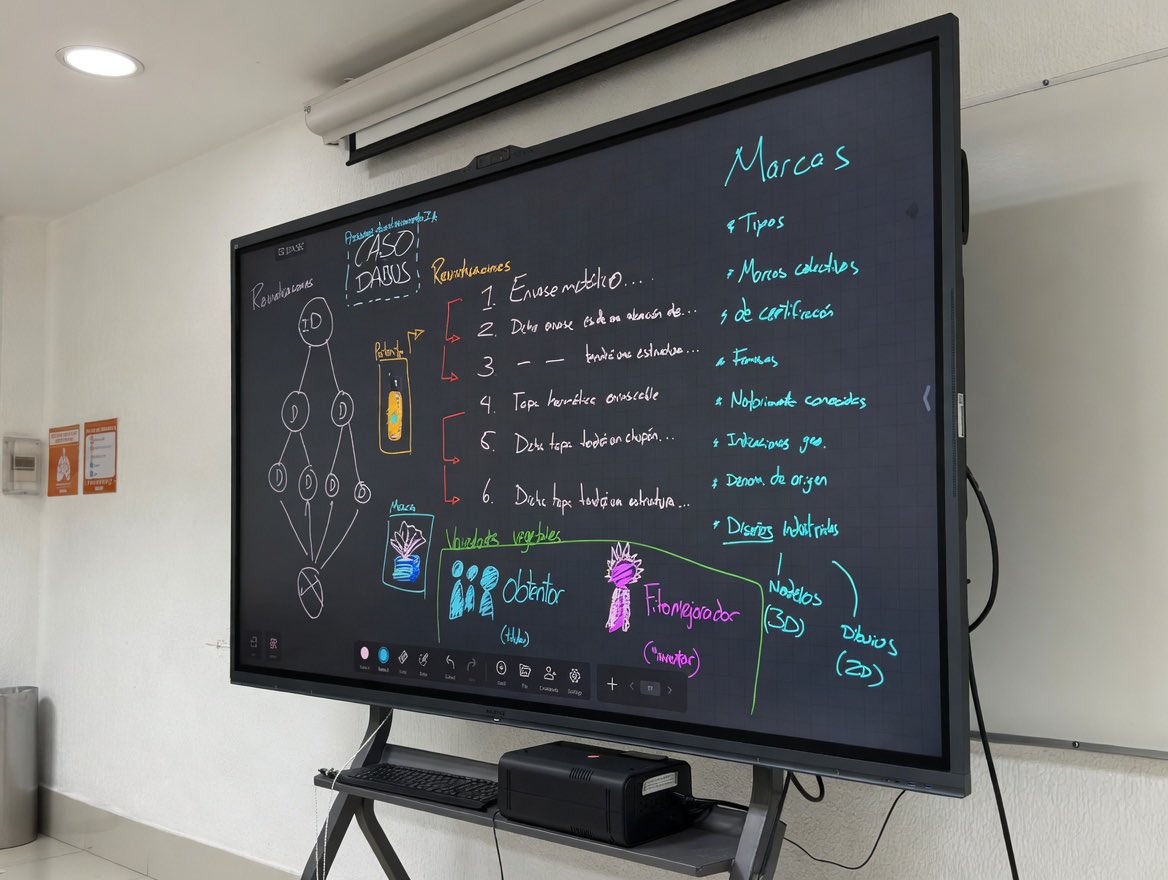 CASO
DABUS
Reivindicaciones
ID
D
D
D
D
D
D
Patente
Reivindicaciones
1. Envase metálico...
2. Dicho envase es de una aleación de...
3. — — tendrá una estructura...
4. Tapa hermética enroscable
5. Dicha tapa tendrá un chupón...
6. Dicha tapa tendrá una estructura...
Marca
Variedades vegetales
Obtentor
(titular)
Fitomejorador
("inventor")
Marcas
* Tipos
* Marcas colectivas
* de certificación
* Famosas
* Notoriamente conocidas
* Indicaciones geo.
* Denom. de origen
* Diseños Industriales
Modelos
(3D)
Dibujos
(2D)